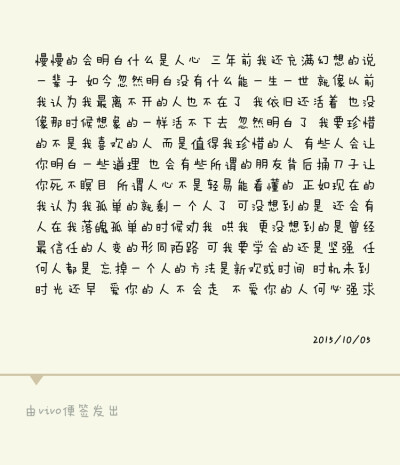 慢慢的会明白什么是人心 三年前我还充满幻想的说
一辈子 如今忽然明白没有什么能一生一世 就像以前
我认为我最离不开的人也不在了 我依旧还活着 也没
像那时候想象的一样活不下去 忽然明白了 我要珍惜
的不是我喜欢的人 而是值得我珍惜的人 有些人会让
你明白一些道理 也会有些所谓的朋友背后捅刀子让
你死不瞑目 所谓人心不是轻易能看懂的 正如现在的
我认为我孤单的就剩一个人了 可没想到的是 还会有
人在我落魄孤单的时候劝我 哄我 更没想到的是曾经
最信任的人变的形同陌路 可我要学会的还是坚强 任
何人都是 忘掉一个人的方法是新欢或时间 时机未到
时光还早 爱你的人不会走 不爱你的人何必强求
2015/10/05
由vivo便签发出